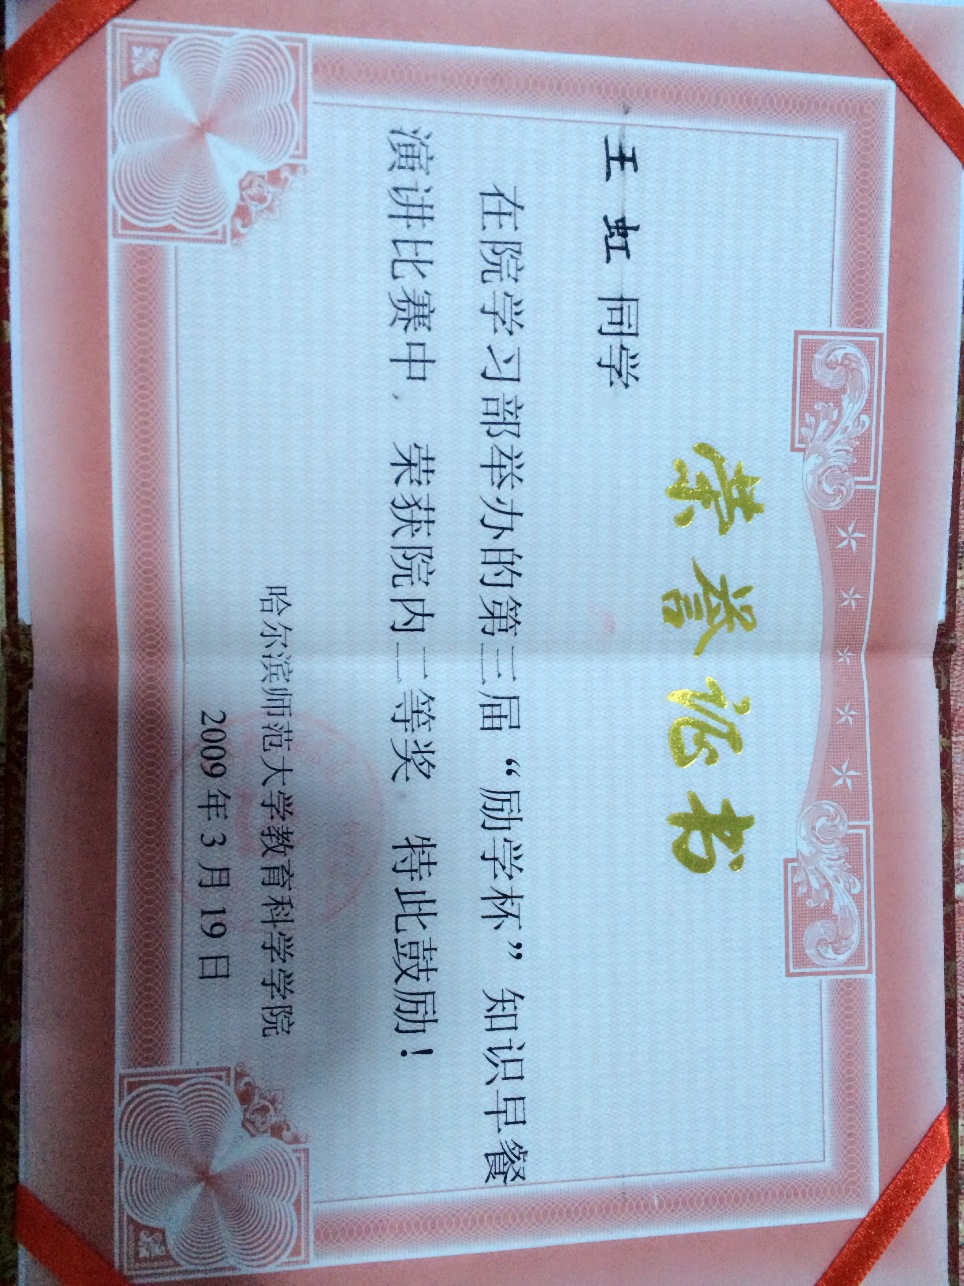 荣誉证书
王虹同学
在院学习部举办的第三届“励学杯”知识早餐
演讲比赛中,荣获院内二等奖。特此鼓励!
哈尔滨师范大学教育科学学院
2009年3月19日